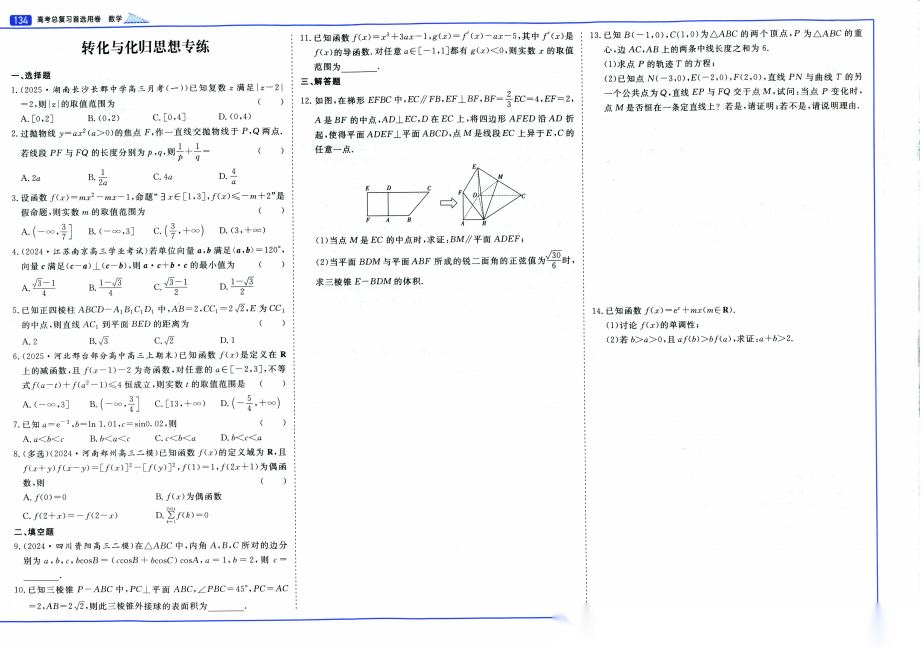 134 高考总复习首选用卷 数学
转化与化归思想专练
一、选择题
1.(2025·湖南长沙长郡中学高三月考(一))已知复数 z 满足|z-2|
=2,则|z|的取值范围为 ( )
A.[0,2] B.(0,2) C.[0,4] D.(0,4)
2.过抛物线 y=ax²(a>0)的焦点 F,作一直线交抛物线于 P,Q 两点.
若线段 PF 与 FQ 的长度分别为 p,q,则1/p+1/q= ( )
A.2a B.1/2a C.4a D.4/a
3.设函数 f(x)=mx²-mx-1,命题“∃x∈[1,3],f(x)≤-m+2”是
假命题,则实数 m 的取值范围为 ( )
A.(-∞,3/7] B.(-∞,3] C.(3/7,+∞) D.(3,+∞)
4.(2024·江苏南京高三学业考试)若单位向量 a,b 满足⟨a,b⟩=120°,
向量 c 满足(c-a)⊥(c-b),则 a·c+b·c 的最小值为 ( )
A.√3-1/4 B.1-√3/4 C.√3-1/2 D.1-√3/2
5.已知正四棱柱 ABCD-A₁B₁C₁D₁ 中,AB=2,CC₁=2√2,E 为 CC₁
的中点,则直线 AC₁ 到平面 BED 的距离为 ( )
A.2 B.√3 C.√2 D.1
6.(2025·河北邢台部分高中高三上期末)已知函数 f(x)是定义在 R
上的减函数,且 f(x-1)-2 为奇函数,对任意的 a∈[-2,3],不等
式f(a-t)+f(a²-1)≤4 恒成立,则实数 t 的取值范围是 ( )
A.(-∞,3] B.(-∞,3/4] C.[13,+∞) D.(-5/4,+∞)
7.已知 a=e⁻³,b=ln 1.01,c=sin0.02,则 ( )
A.a<b<c B.b<a<c C.c<b<a D.b<c<a
8.(多选)(2024·河南郑州高三二模)已知函数 f(x)的定义域为 R,且
f(x+y)f(x-y)=[f(x)]²-[f(y)]²,f(1)=1,f(2x+1)为偶函
数,则 ( )
A.f(0)=0 B.f(x)为偶函数
C.f(2+x)=-f(2-x) D.2024∑k=1 f(k)=0
二、填空题
9.(2024·四川资阳高三二模)在△ABC 中,内角 A,B,C 所对的边分
别为 a,b,c,bcosB=(ccosB+bcosC)cosA,a=1,b=2,则 c=
________.
10.已知三棱锥 P-ABC 中,PC⊥平面 ABC,∠PBC=45°,PC=AC
=2,AB=2√2,则此三棱锥外接球的表面积为________.
11.已知函数 f(x)=x³+3ax-1,g(x)=f′(x)-ax-5,其中 f′(x)是
f(x)的导函数.对任意 a∈[-1,1]都有 g(x)<0,则实数 x 的取值
范围为________.
三、解答题
12.如图,在梯形 EFBC 中,EC∥FB,EF⊥BF,BF=2/3EC=4,EF=2,
A 是 BF 的中点,AD⊥EC,D 在 EC 上,将四边形 AFED 沿 AD 折
起,使得平面 ADEF⊥平面 ABCD,点 M 是线段 EC 上异于 E,C 的
任意一点.
E D C
F A B
E M F D C A B
(1)当点 M 是 EC 的中点时,求证:BM∥平面 ADEF;
(2)当平面 BDM 与平面 ABF 所成的锐二面角的正弦值为√30/6时,
求三棱锥 E-BDM 的体积.
13.已知 B(-1,0),C(1,0)为△ABC 的两个顶点,P 为△ABC 的重
心,边 AC,AB 上的两条中线长度之和为 6.
(1)求点 P 的轨迹 T 的方程;
(2)已知点 N(-3,0),E(-2,0),F(2,0),直线 PN 与曲线 T 的另
一个公共点为 Q,直线 EP 与 FQ 交于点 M,试问:当点 P 变化时,
点 M 是否恒在一条定直线上?若是,请证明;若不是,请说明理由.
14.已知函数 f(x)=eˣ+mx(m∈R).
(1)讨论 f(x)的单调性;
(2)若 b>a>0,且 af(b)>bf(a),求证:a+b>2.